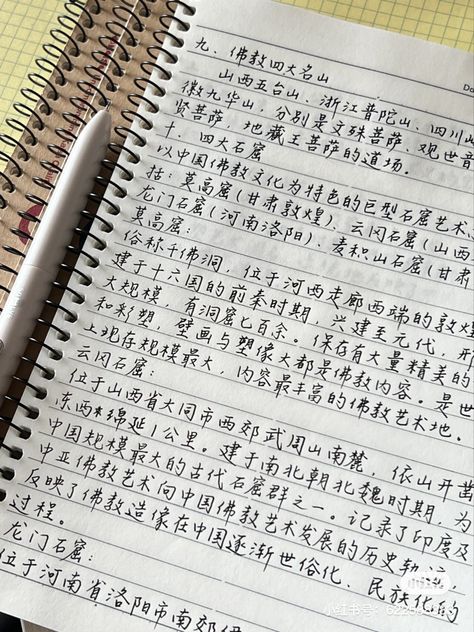 九、佛教四大名山
山西五台山、浙江普陀山、四川
徽九华山，分别是文殊菩萨、观世音
贤菩萨、地藏王菩萨的道场。
十、四大石窟
以中国佛教文化为特色的巨型石窟艺术
括：莫高窟（甘肃敦煌）、云冈石窟（山西
龙门石窟（河南洛阳）、麦积山石窟（甘肃
莫高窟：
俗称千佛洞，位于河西走廊西端的敦煌
建于十六国的前秦时期，兴建至元代，开
大规模，有洞窟七百余。保存有大量精美的
和彩塑，壁画与塑像大都是佛教内容。是世
上现存规模最大，内容最丰富的佛教艺术地。
云冈石窟：
位于山西省大同市西郊武周山南麓，依山开凿
东西绵延1公里。建于南北朝北魏时期，为
中国规模最大的古代石窟群之一。记录了印度及
中亚佛教艺术向中国佛教艺术发展的历史轨
反映了佛教造像在中国逐渐世俗化、民族化的
过程。
龙门石窟：
位于河南省洛阳市南郊伊
小红书
小红书号：